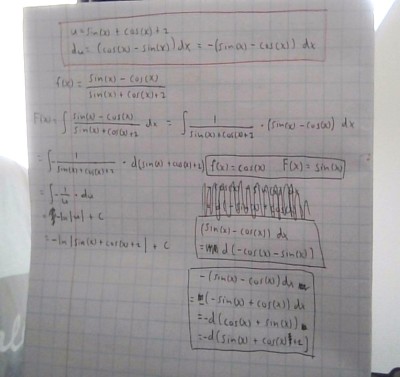 u = sin(x) + cos(x) + 2
du = (cos(x) - sin(x)) dx = -(sin(x) - cos(x)) dx
f(x) = (sin(x) - cos(x)) / (sin(x) + cos(x) + 2)
F(x) = ∫ (sin(x) - cos(x)) / (sin(x) + cos(x) + 2) dx = ∫ 1 / (sin(x) + cos(x) + 2) · (sin(x) - cos(x)) dx
= ∫ - 1 / (sin(x) + cos(x) + 2) · d(sin(x) + cos(x) + 2)
f(x) = cos(x) F(x) = sin(x)
= ∫ - 1/u · du
= -ln|u| + C
= -ln|sin(x) + cos(x) + 2| + C
(sin(x) - cos(x)) dx
= d(-cos(x) - sin(x))
-(sin(x) - cos(x)) dx
= (-sin(x) + cos(x)) dx
= -d(cos(x) + sin(x))
= -d(sin(x) + cos(x) + 2)